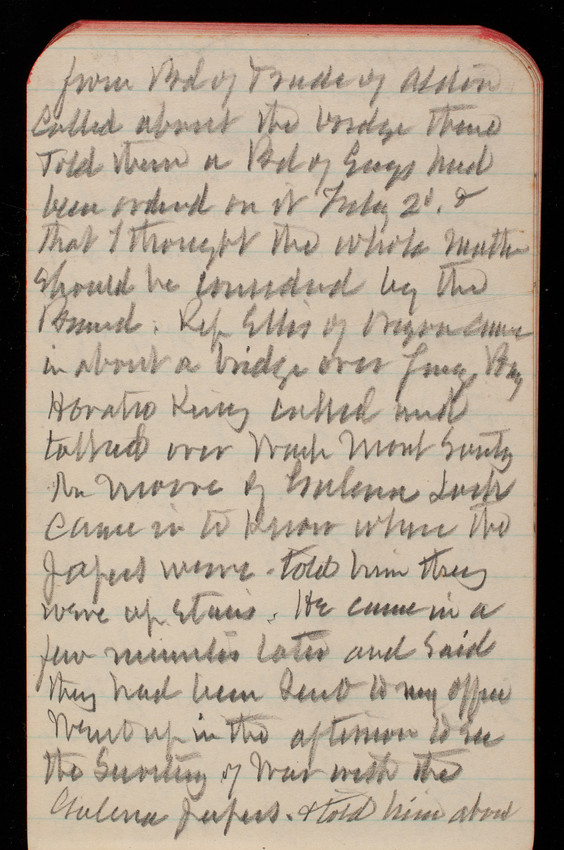 from Bd of Trade of Astoria
called about the bridge there
Told them a Bd of Engrs had
been ordered on it July 2d. &
that I thought the whole matter
should be considered by the
Board. Rep Ellis of Oregon came
in about a bridge over Youngs Bay
Horatio King called and
talked over Wash Mont Society
Mr Moore of Galena Lock
came in to know where the
papers were - told him they
were up stairs. He came in a
few minutes later and said
they had been sent to my office
Went up in the afternoon to see
the Secretary of War with the
Galena papers. & told him about